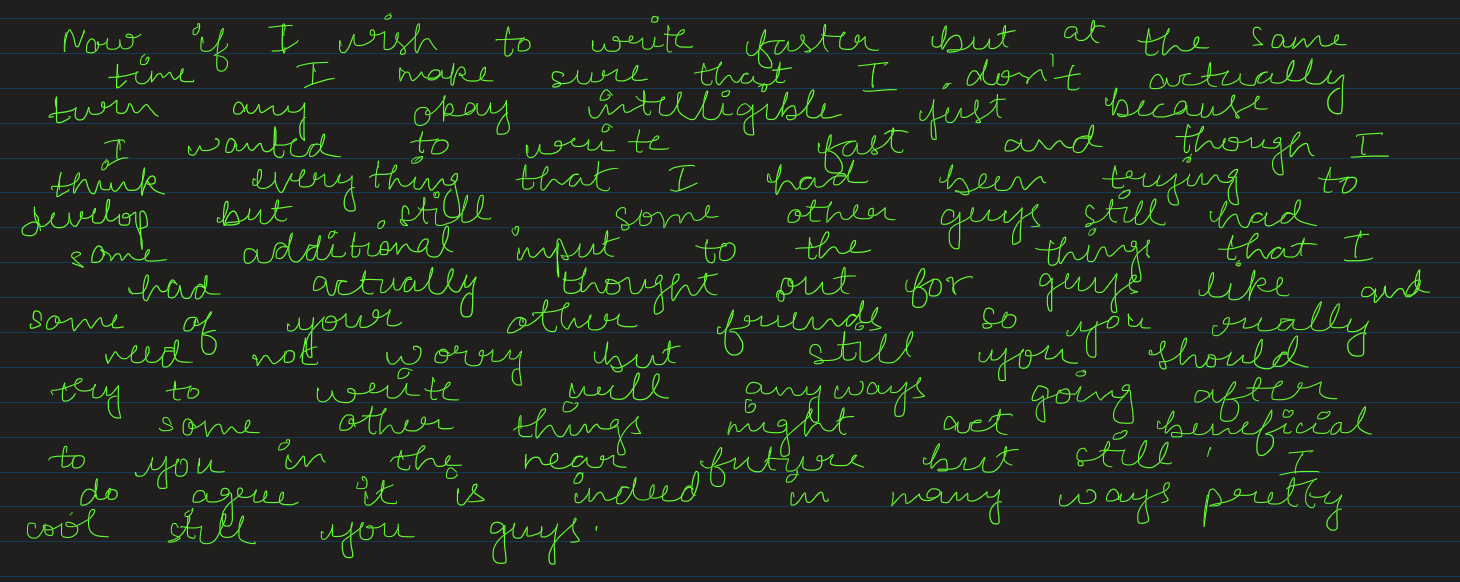 Now, if I wish to write faster but, at the same
time I make sure that I don't actually
turn any okay intelligible just because
I wanted to write fast and though I
think everything that I had been trying to
develop but still some other guys still had
some additional input to the things that I
had actually thought out for guys like and
some of your other friends so you really
need not worry but still you should
try to write well anyways going after
some other things might act beneficial
to you in the near future but still, I
do agree it is indeed in many ways pretty
cool still you guys.